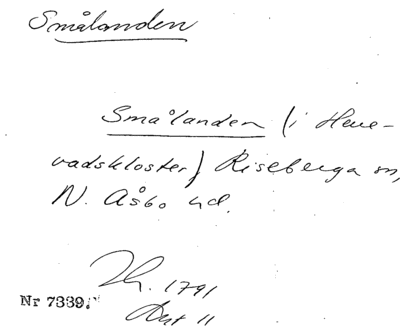 Smålanden
Smålanden (i Herre-
vadskloster) Riseberga sn,
N. Åsbo hd.
1791
Nr 7339.
11